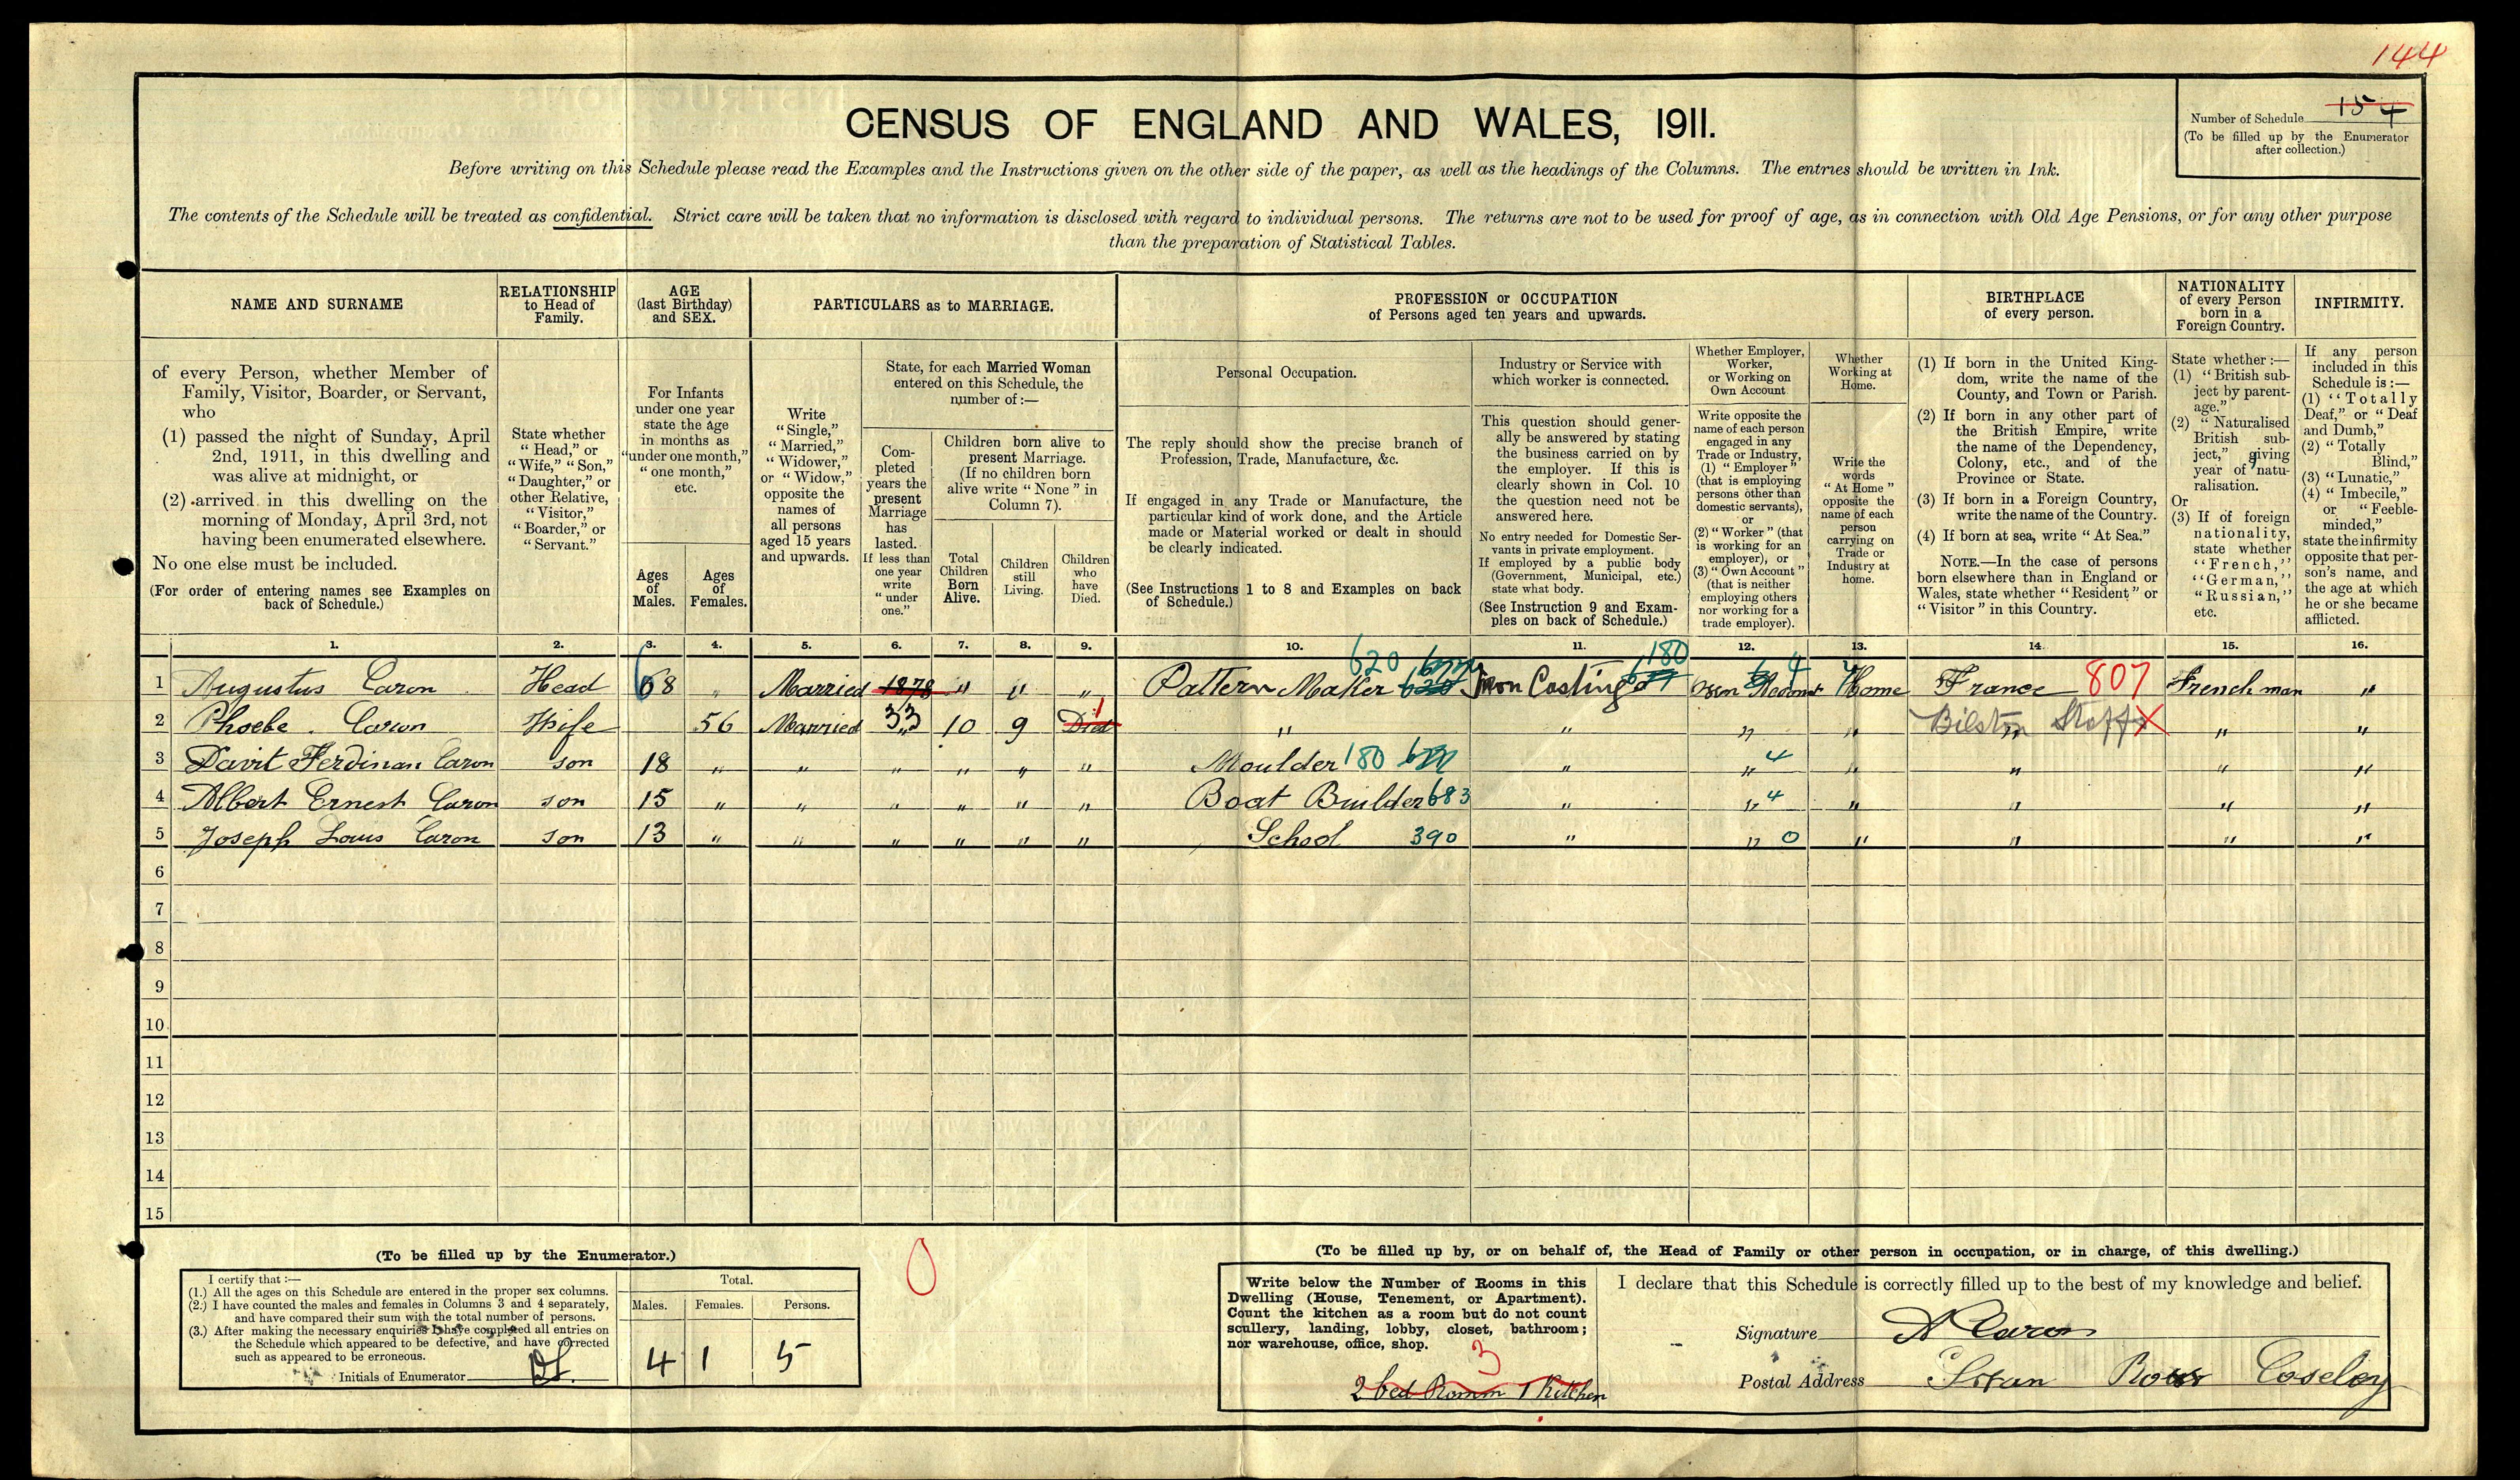 144
CENSUS OF ENGLAND AND WALES, 1911.
Number of Schedule 154
(To be filled up by the Enumerator
after collection.)
Before writing on this Schedule please read the Examples and the Instructions given on the other side of the paper, as well as the headings of the Columns. The entries should be written in Ink.
The contents of the Schedule will be treated as confidential. Strict care will be taken that no information is disclosed with regard to individual persons. The returns are not to be used for proof of age, as in connection with Old Age Pensions, or for any other purpose
than the preparation of Statistical Tables.
NAME AND SURNAME
of every Person, whether Member of
Family, Visitor, Boarder, or Servant,
who
(1) passed the night of Sunday, April
2nd, 1911, in this dwelling and
was alive at midnight, or
(2) arrived in this dwelling on the
morning of Monday, April 3rd, not
having been enumerated elsewhere.
No one else must be included.
(For order of entering names see Examples on
back of Schedule.)
RELATIONSHIP
to Head of
Family.
State whether
"Head," or
"Wife," "Son,"
"Daughter," or
other Relative,
"Visitor,"
"Boarder," or
"Servant."
AGE
(last Birthday)
and SEX.
For Infants
under one year
state the age
in months as
"under one month,"
"one month,"
etc.
Ages
of
Males.
Ages
of
Females.
PARTICULARS as to MARRIAGE.
Write
"Single,"
"Married,"
"Widower,"
or "Widow,"
opposite the
names of
all persons
aged 15 years
and upwards.
State, for each Married Woman
entered on this Schedule, the
number of :—
Com-
pleted
years the
present
Marriage
has
lasted.
If less than
one year
write
"under
one."
Children born alive to
present Marriage.
(If no children born
alive write "None" in
Column 7).
Total
Children
Born
Alive.
Children
still
Living.
Children
who
have
Died.
PROFESSION or OCCUPATION
of Persons aged ten years and upwards.
Personal Occupation.
The reply should show the precise branch of
Profession, Trade, Manufacture, &c.
If engaged in any Trade or Manufacture, the
particular kind of work done, and the Article
made or Material worked or dealt in should
be clearly indicated.
(See Instructions 1 to 8 and Examples on back
of Schedule.)
Industry or Service with
which worker is connected.
This question should gener-
ally be answered by stating
the business carried on by
the employer. If this is
clearly shown in Col. 10
the question need not be
answered here.
No entry needed for Domestic Ser-
vants in private employment.
If employed by a public body
(Government, Municipal, etc.)
state what body.
(See Instruction 9 and Exam-
ples on back of Schedule.)
Whether Employer,
Worker,
or Working on
Own Account
Write opposite the
name of each person
engaged in any
Trade or Industry,
(1) "Employer"
(that is employing
persons other than
domestic servants),
or
(2) "Worker" (that
is working for an
employer), or
(3) "Own Account"
(that is neither
employing others
nor working for a
trade employer).
Whether
Working at
Home.
Write the
words
"At Home"
opposite the
name of each
person
carrying on
Trade or
Industry at
home.
BIRTHPLACE
of every person.
(1) If born in the United King-
dom, write the name of the
County, and Town or Parish.
(2) If born in any other part of
the British Empire, write
the name of the Dependency,
Colony, etc., and of the
Province or State.
(3) If born in a Foreign Country,
write the name of the Country.
(4) If born at sea, write "At Sea."
NOTE.—In the case of persons
born elsewhere than in England or
Wales, state whether "Resident" or
"Visitor" in this Country.
NATIONALITY
of every Person
born in a
Foreign Country.
State whether :—
(1) "British sub-
ject by parent-
age."
(2) "Naturalised
British sub-
ject," giving
year of natu-
ralisation.
Or
(3) If of foreign
nationality,
state whether
"French,"
"German,"
"Russian,"
etc.
INFIRMITY.
If any person
included in this
Schedule is :—
(1) "Totally
Deaf," or "Deaf
and Dumb,"
(2) "Totally
Blind,"
(3) "Lunatic,"
(4) "Imbecile,"
or "Feeble-
minded,"
state the infirmity
opposite that per-
son's name, and
the age at which
he or she became
afflicted.
1. 2. 3. 4. 5. 6. 7. 8. 9. 10. 11. 12. 13. 14. 15. 16.
620 180 4
1 Augustus Caron Head 68 " Married 1878 " " " Pattern Maker Iron Casting Own Account Home France 807 French man "
2 Phoebe Caron Wife 56 Married 33 10 9 Died 1 " " " " Bilston Staffs X " "
3 Davit Ferdinan Caron son 18 " " " " " " Moulder 180 " " 4 " " " "
4 Albert Ernest Caron son 15 " " " " " " Boat Builder 683 " " 4 " " " "
5 Joseph Louis Caron son 13 " " " " " " School 390 " " 0 " " " "
6
7
8
9
10
11
12
13
14
15
(To be filled up by the Enumerator.)
I certify that :—
(1.) All the ages on this Schedule are entered in the proper sex columns.
(2.) I have counted the males and females in Columns 3 and 4 separately,
and have compared their sum with the total number of persons.
(3.) After making the necessary enquiries I have completed all entries on
the Schedule which appeared to be defective, and have corrected
such as appeared to be erroneous.
Initials of Enumerator
Total.
Males. Females. Persons.
4 1 5
0
(To be filled up by, or on behalf of, the Head of Family or other person in occupation, or in charge, of this dwelling.)
Write below the Number of Rooms in this
Dwelling (House, Tenement, or Apartment).
Count the kitchen as a room but do not count
scullery, landing, lobby, closet, bathroom;
nor warehouse, office, shop.
3
2 bed Romm 1 Kitchen
I declare that this Schedule is correctly filled up to the best of my knowledge and belief.
Signature A Caron
Postal Address Coseley